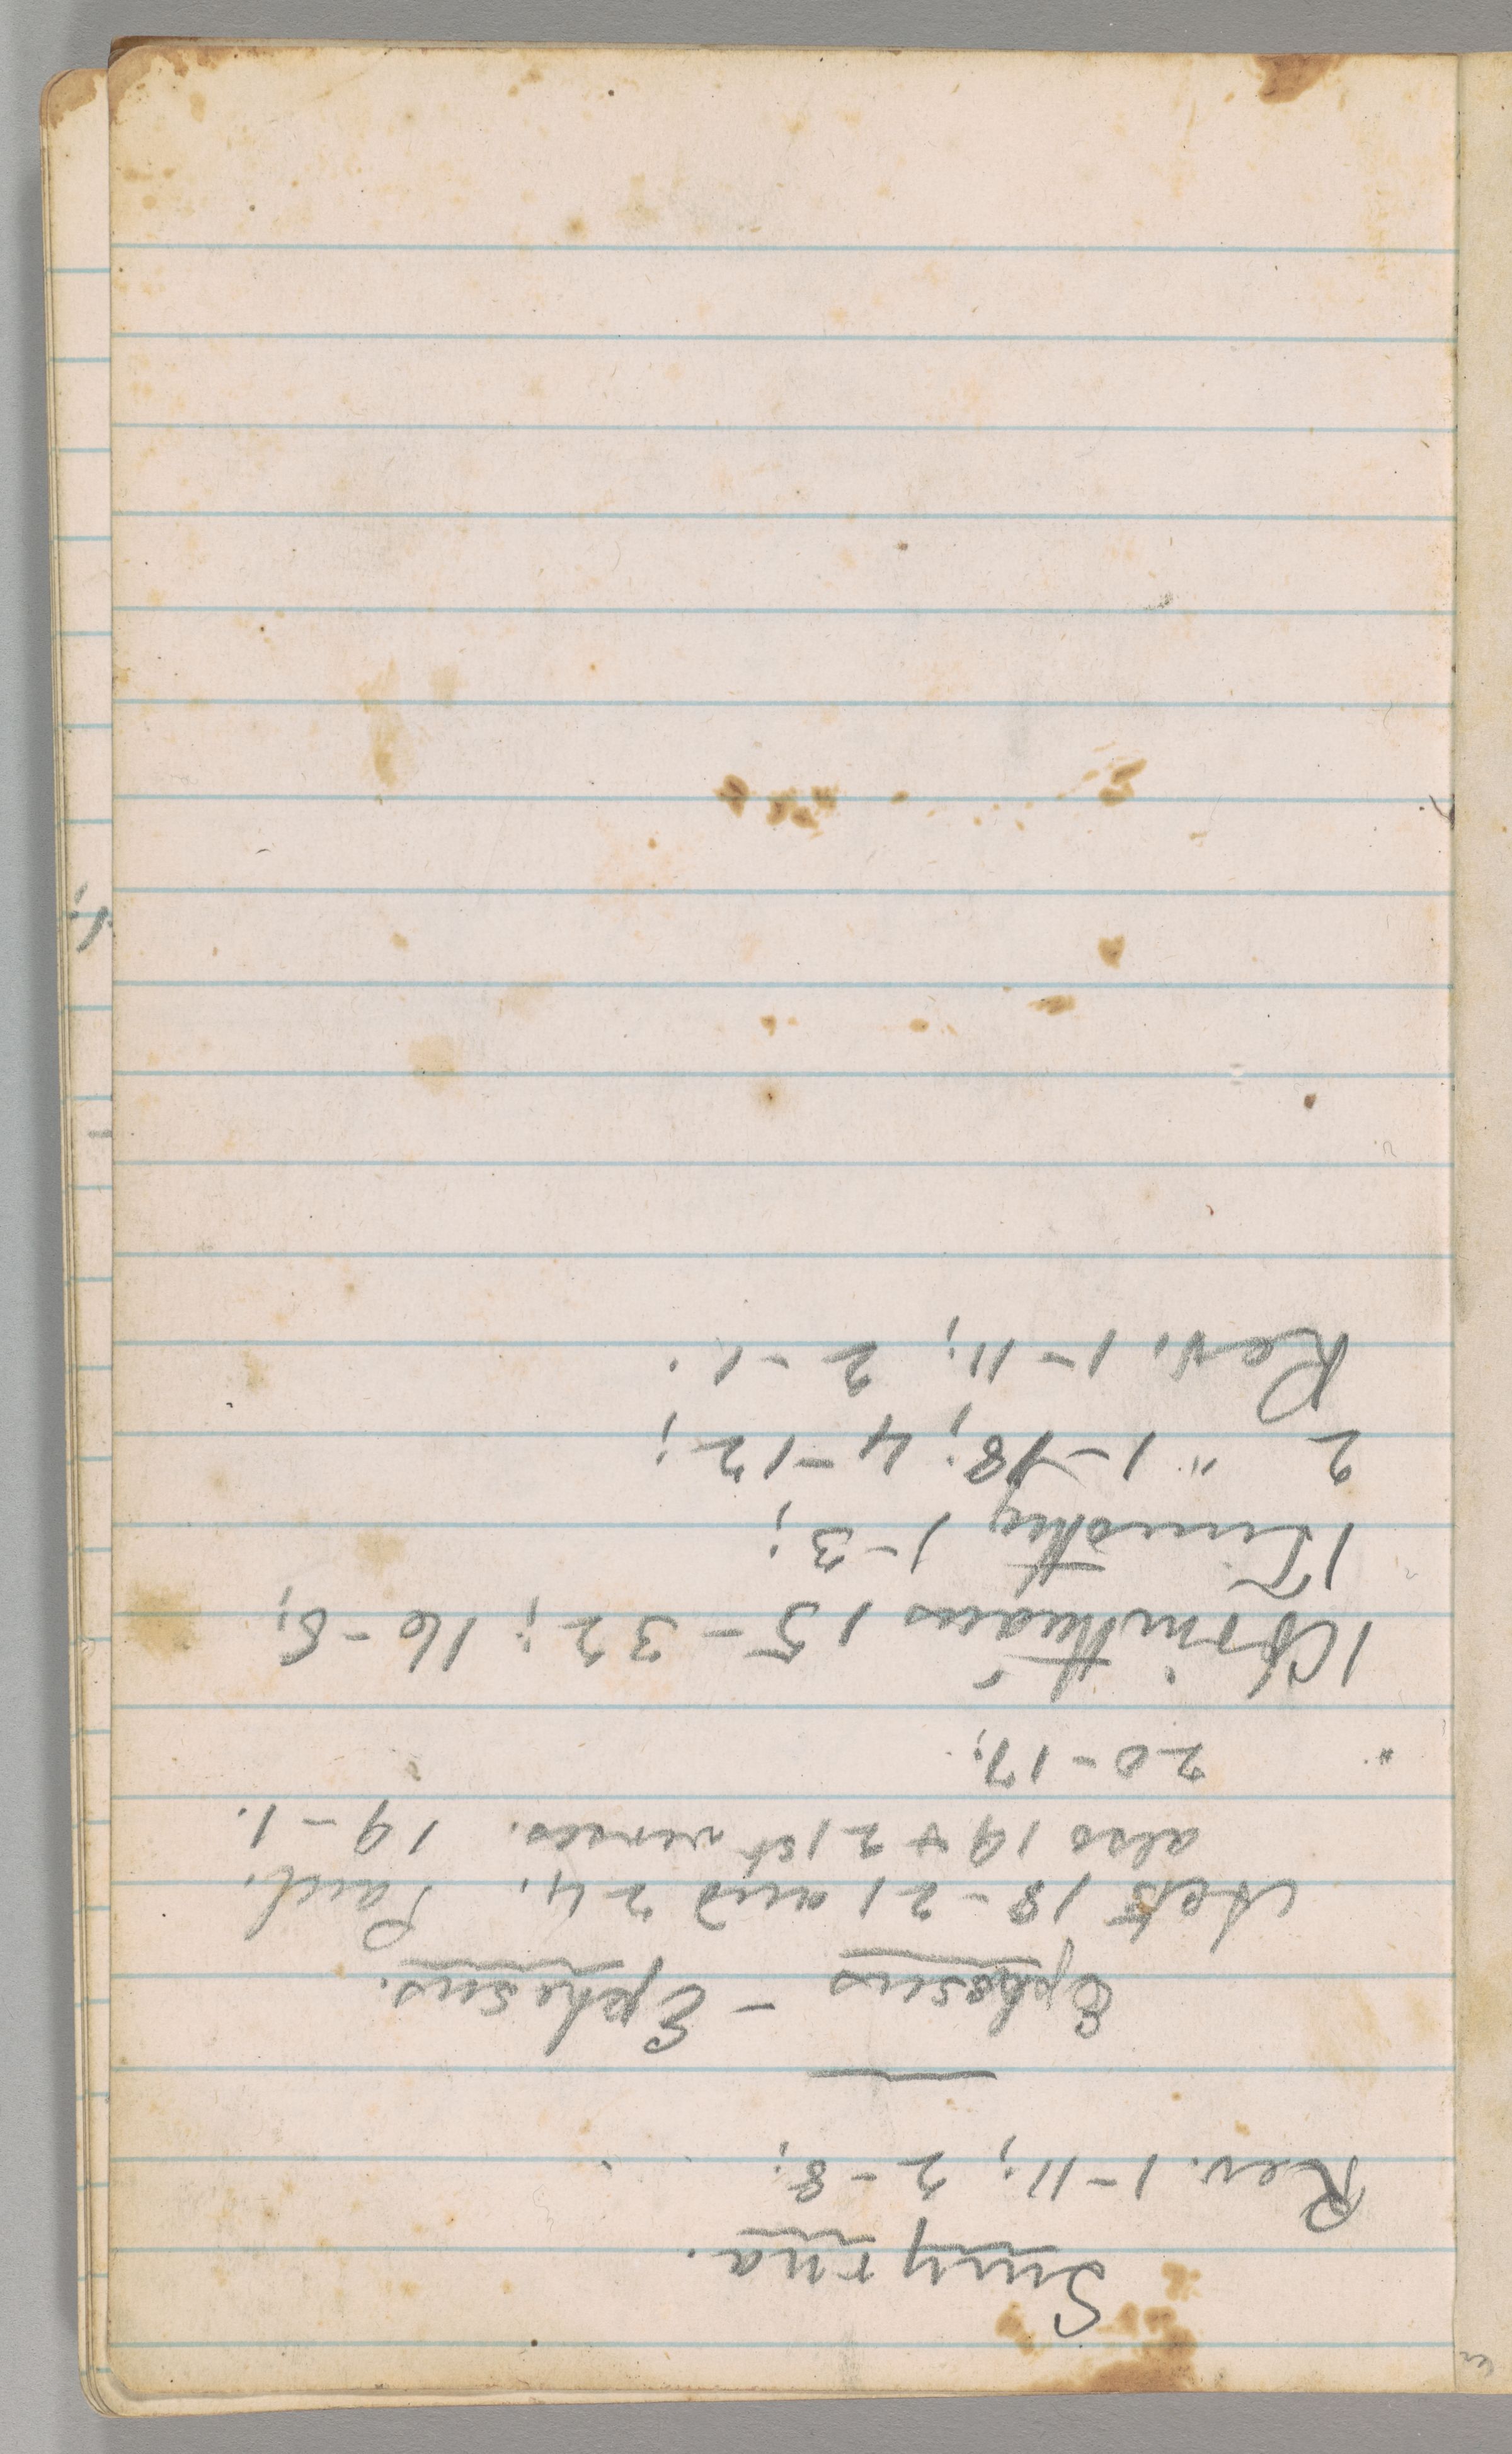 Smyrna.
Rev. 1-11; 2-8;
Ephesus - Ephesus.
Acts 18-21 and 24. Paul.
also 19 & 21st verses. 19-1.
20-17;
1 Corinthians 15-32; 16-8;
1 Timothy 1-3;
2 " 1-18; 4-12;
Rev. 1-11; 2-1.